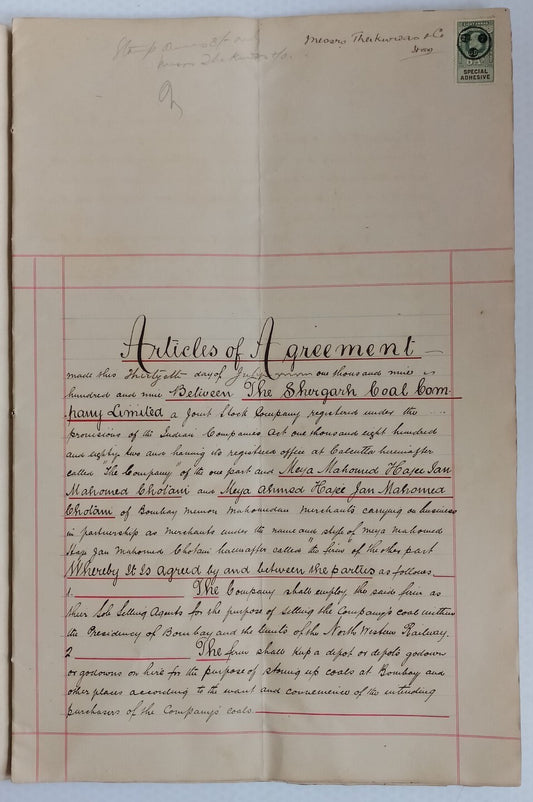 Messrs Thakurdas & Co
SPECIAL
ADHESIVE
Articles of Agreement
made this Thirtyeth day of July one thousand nine
hundred and nine Between The Shergarh Coal Com-
pany Limited a Joint Stock Company registered under the
provisions of the Indian Companies Act one thousand eight hundred
and eighty two and having its registered office at Calcutta hereinafter
called "The Company" of the one part and Meya Mahomed Hajee Jan
Mahomed Chotani and Meya Ahmed Hajee Jan Mahomed
Chotani of Bombay Memon Mahomedan Merchants carrying on business
in partnership as merchants under the name and style of Meya Mahomed
Haji Jan Mahomed Chotani hereinafter called "the firm" of the other part
Whereby It Is agreed by and between the parties as follows
1. The Company shall employ the said firm as
their Sole Selling Agents for the purpose of selling the Company's coal within
the Presidency of Bombay and the limits of the North Western Railway.
2 The firm shall keep a depot or depots godown
or godowns on hire for the purpose of storing up coals at Bombay and
other places according to the want and convenience of the intending
purchasers of the Company's coals.